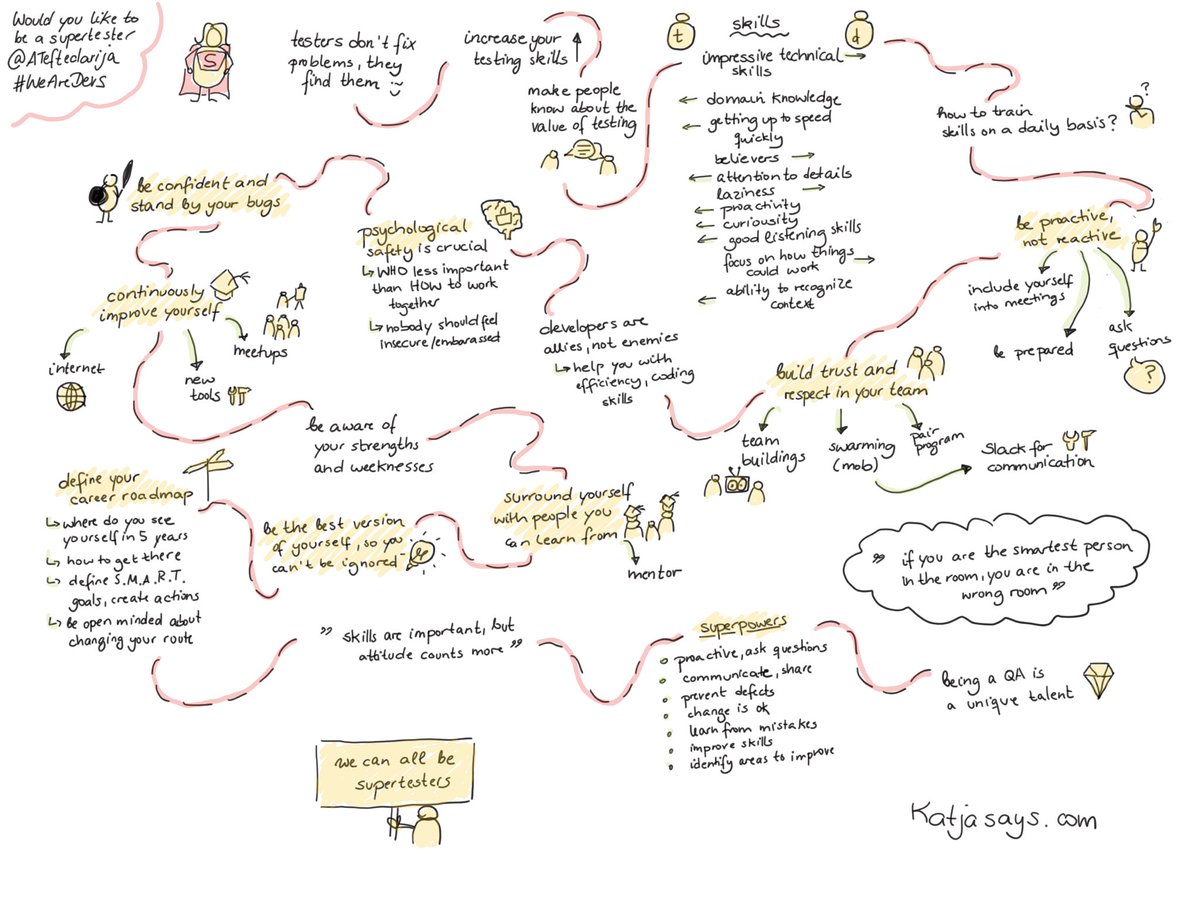 Would you like to
be a supertester
@ATefteolarija
#WeAreDevs
S
testers don't fix
problems, they
find them
increase your
testing skills
make people
know about the
value of testing
skills
t
d
impressive technical
skills
domain knowledge
getting up to speed
quickly
believers
attention to details
laziness
proactivity
curiousity
good listening skills
focus on how things
could work
ability to recognize
context
how to train
skills on a daily basis?
?
be proactive,
not reactive
include yourself
into meetings
be prepared
ask
questions
?
build trust and
respect in your team
team
buildings
swarming
(mob)
pair
program
Slack for
communication
developers are
allies, not enemies
help you with
efficiency, coding
skills
psychological
safety is crucial
WHO less important
than HOW to work
together
nobody should feel
insecure/embarassed
be confident and
stand by your bugs
continuously
improve yourself
internet
new
tools
meetups
be aware of
your strengths
and weeknesses
surround yourself
with people you
can learn from
mentor
be the best version
of yourself, so you
can't be ignored
define your
career roadmap
where do you see
yourself in 5 years
how to get there
define S.M.A.R.T.
goals, create actions
be open minded about
changing your route
" skills are important, but
attitude counts more "
superpowers
proactive, ask questions
communicate, share
prevent defects
change is ok
learn from mistakes
improve skills
identify areas to improve
being a QA is
a unique talent
" if you are the smartest person
in the room, you are in the
wrong room "
we can all be
supertesters
Katjasays.com